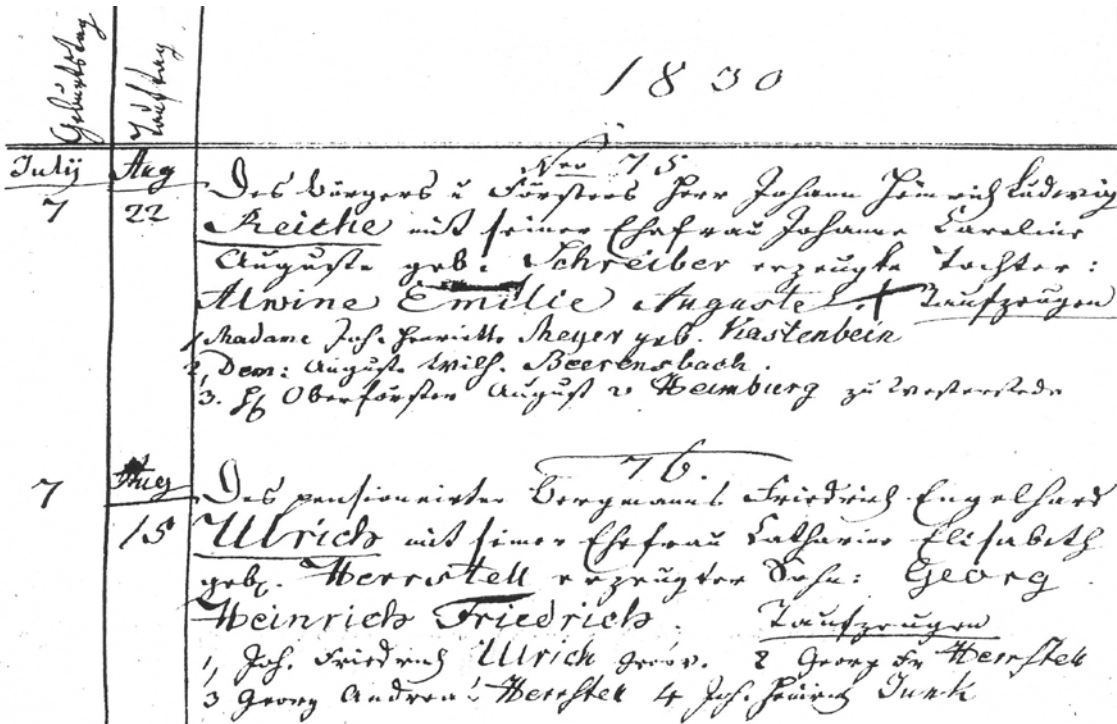 Geburtstag
Tauftag
1830
July Aug Nro 75
Des Bürgers u Försters Herr Johann Heinrich Ludewig
7 22
Reiche mit seiner Ehefrau Johanne Caroline
Auguste geb. Schreiber erzeugte Tochter:
Alwine Emilie Auguste. Taufzeugen
1, Madame Joh. Henriette Meyer geb. Kastenbein
2, Dem: Auguste Wilh. Beerensbach.
3. H Oberförster August v Heimburg zu Westerstede
76.
7 Aug Des pensionirten Bergmanns Friedrich Engelhard
15 Ulrich mit seiner Ehefrau Catharine Elisabeth
geb. Herrstell erzeugter Sohn: Georg
Heinrich Friedrich. Taufzeugen
1, Joh. Friedrich Ulrich 2 Georg Fr Herrstell
3 Georg Andreas Herrstell 4 Joh. Heinrich Junk